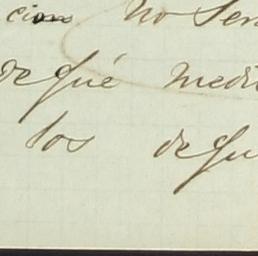 cion no ser
de qué medi
los de qu